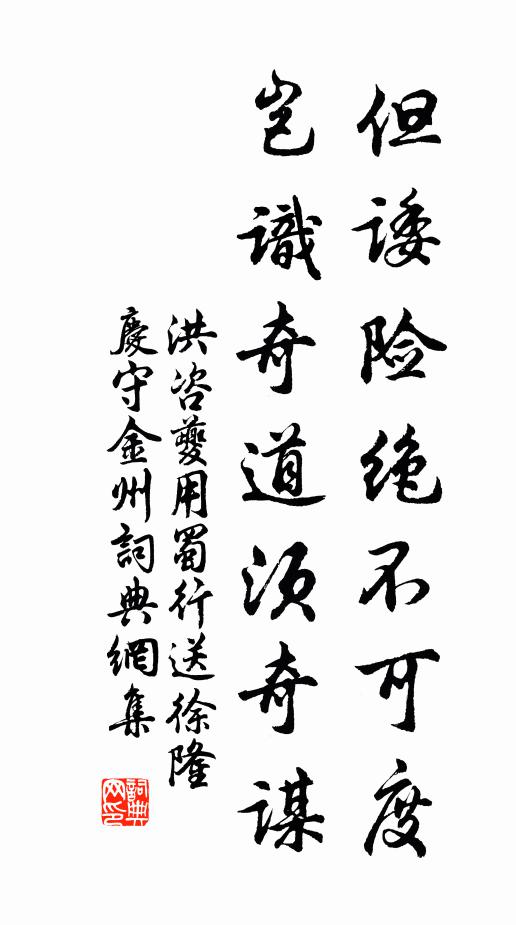 但诿险绝不可度
岂識奇道须奇謀
洪咨夔用蜀行送徐隆
慶守金州詞典網集
詞典网印